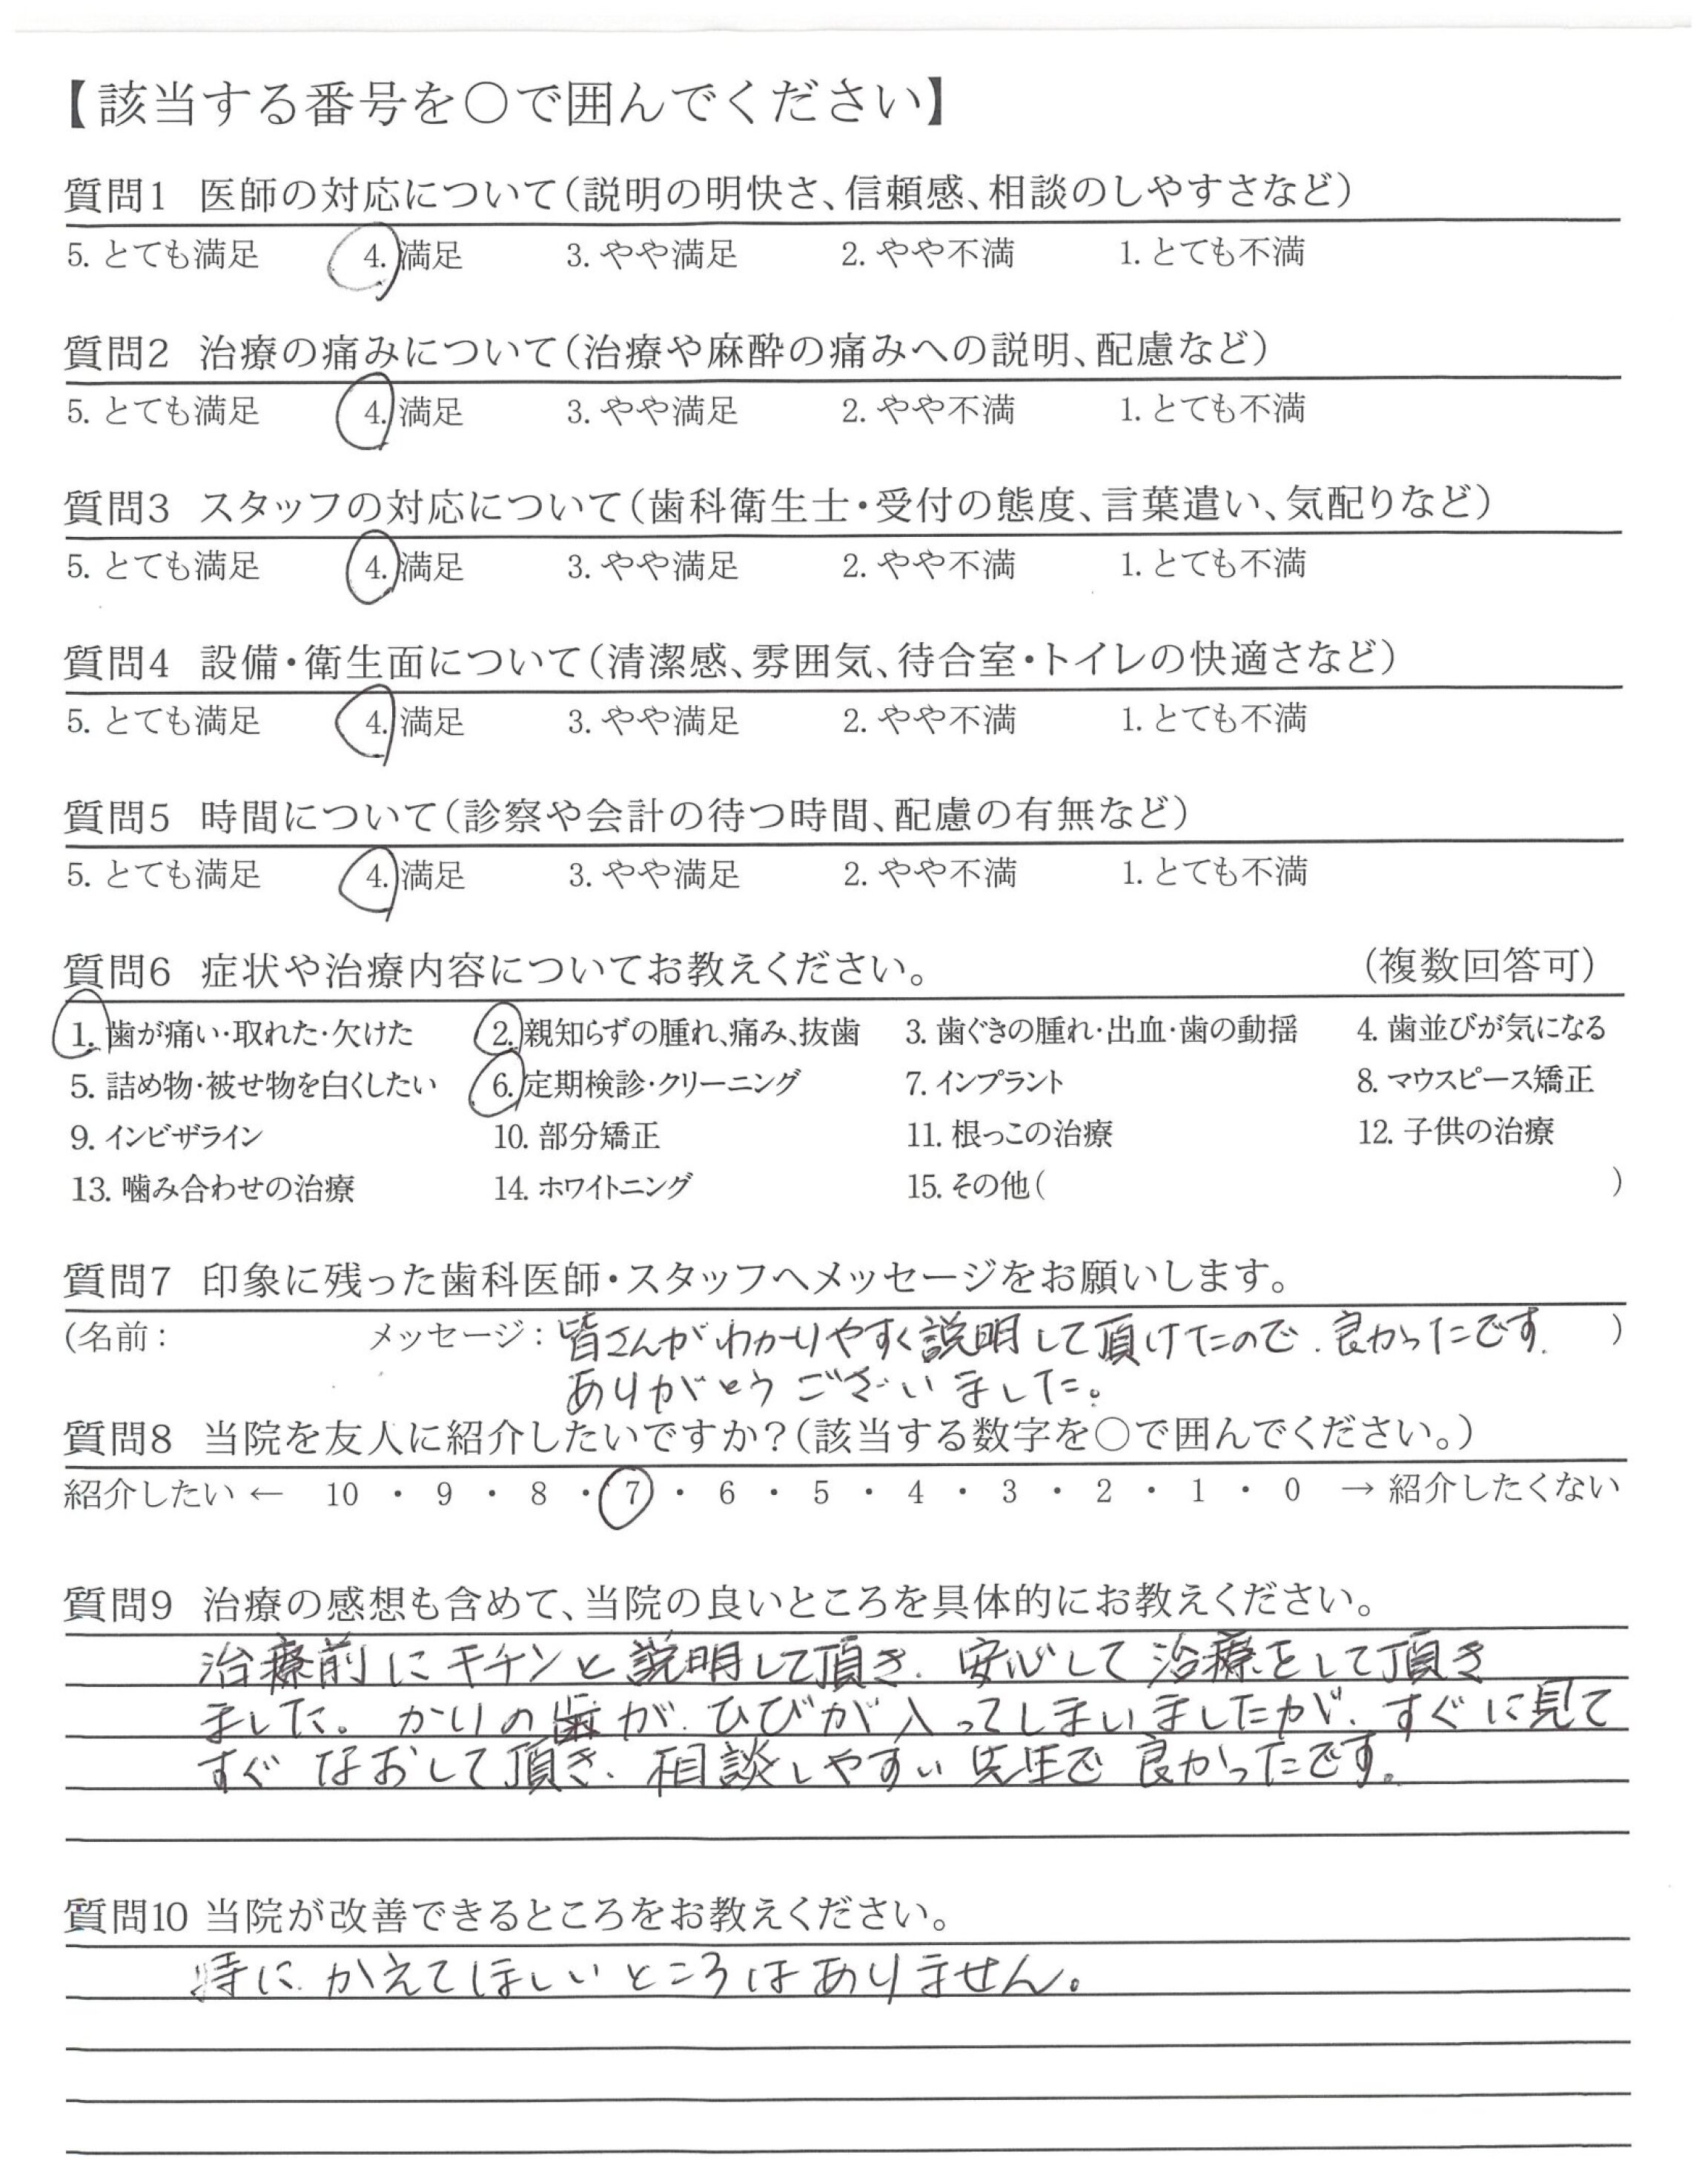 【該当する番号を○で囲んでください】
質問1 医師の対応について(説明の明快さ、信頼感、相談のしやすさなど)
5. とても満足 4. 満足 3. やや満足 2. やや不満 1. とても不満
質問2 治療の痛みについて(治療や麻酔の痛みへの説明、配慮など)
5. とても満足 4. 満足 3. やや満足 2. やや不満 1. とても不満
質問3 スタッフの対応について(歯科衛生士・受付の態度、言葉遣い、気配りなど)
5. とても満足 4. 満足 3. やや満足 2. やや不満 1. とても不満
質問4 設備・衛生面について(清潔感、雰囲気、待合室・トイレの快適さなど)
5. とても満足 4. 満足 3. やや満足 2. やや不満 1. とても不満
質問5 時間について(診察や会計の待つ時間、配慮の有無など)
5. とても満足 4. 満足 3. やや満足 2. やや不満 1. とても不満
質問6 症状や治療内容についてお教えください。 (複数回答可)
1. 歯が痛い・取れた・欠けた 2. 親知らずの腫れ、痛み、抜歯 3. 歯ぐきの腫れ・出血・歯の動揺 4. 歯並びが気になる
5. 詰め物・被せ物を白くしたい 6. 定期検診・クリーニング 7. インプラント 8. マウスピース矯正
9. インビザライン 10. 部分矯正 11. 根っこの治療 12. 子供の治療
13. 噛み合わせの治療 14. ホワイトニング 15. その他( )
質問7 印象に残った歯科医師・スタッフへメッセージをお願いします。
(名前: メッセージ: 皆さんがわかりやすく説明して頂けたので、良かったです. )
ありがとうございました。
質問8 当院を友人に紹介したいですか?(該当する数字を○で囲んでください。)
紹介したい ← 10 ・ 9 ・ 8 ・ 7 ・ 6 ・ 5 ・ 4 ・ 3 ・ 2 ・ 1 ・ 0 → 紹介したくない
質問9 治療の感想も含めて、当院の良いところを具体的にお教えください。
治療前にキチンと説明して頂き、安心して治療をして頂き
ました。かりの歯が、ひびが入ってしまいましたが、すぐに見て
すぐなおして頂き、相談しやすい先生で良かったです。
質問10 当院が改善できるところをお教えください。
特に、かえてほしいところはありません。